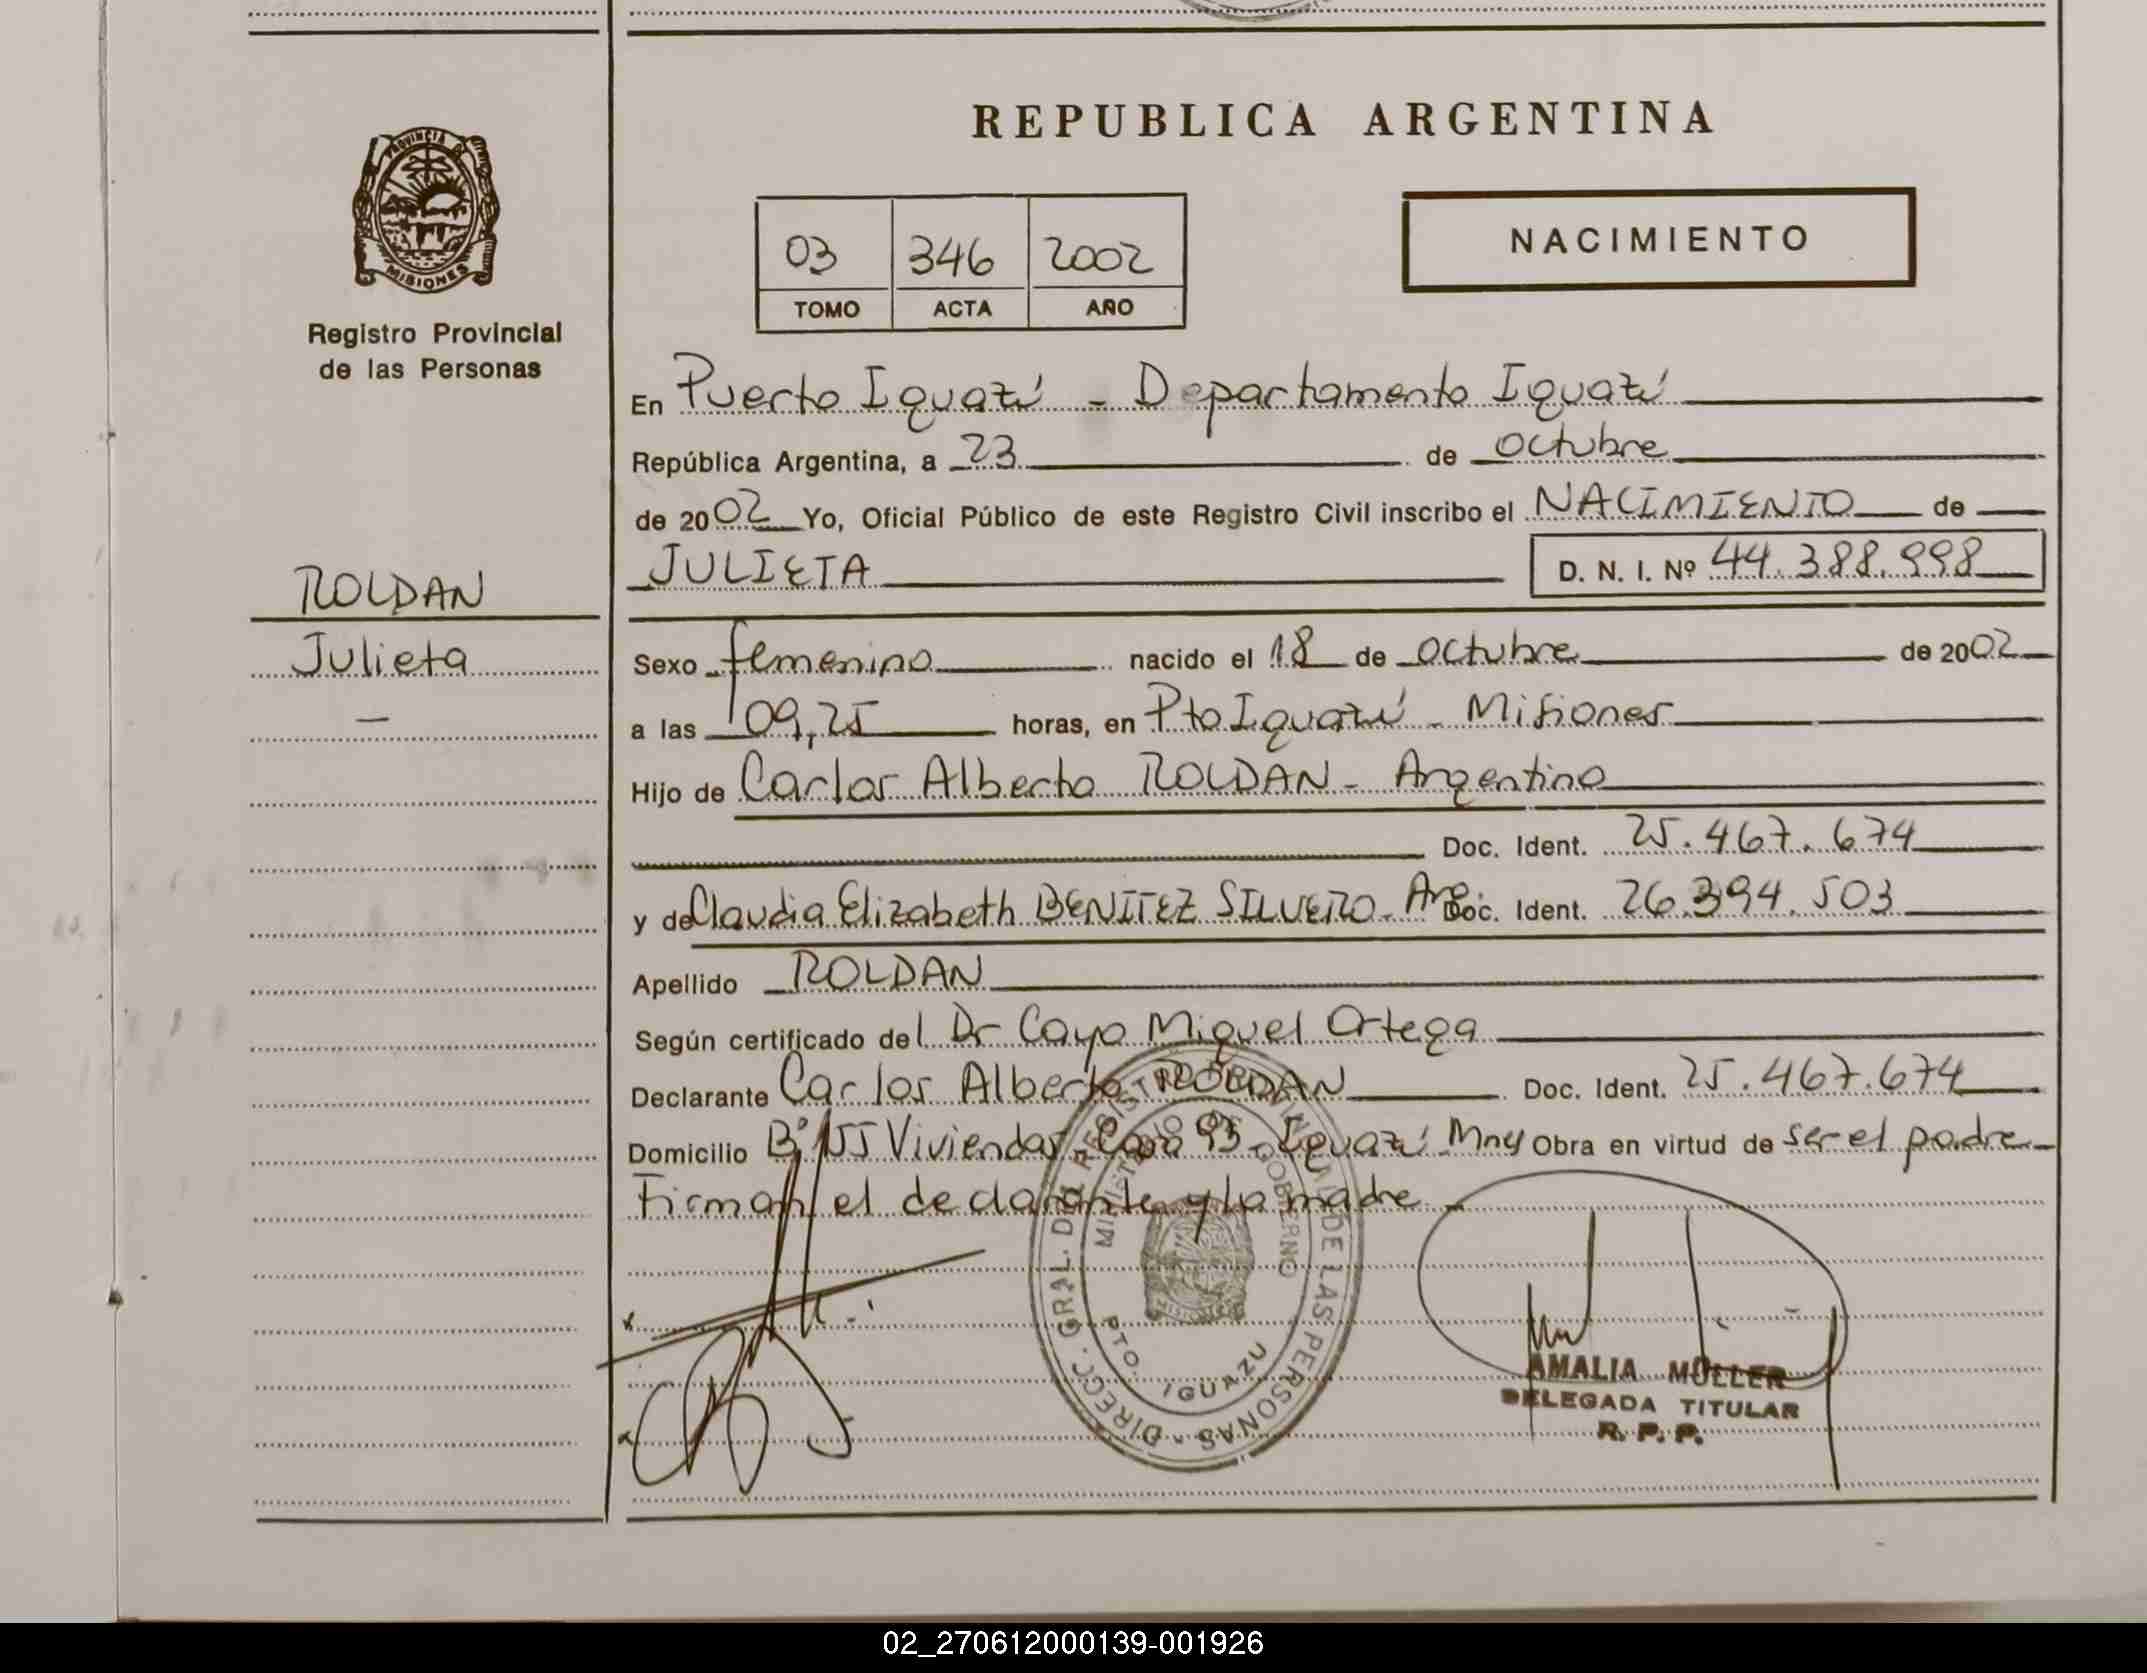 REPUBLICA ARGENTINA
PROVINCIA DE
MISIONES
Registro Provincial
de las Personas
03 346 2002
TOMO ACTA AÑO
NACIMIENTO
En Puerto Iguazú - Departamento Iguazú
República Argentina, a 23 de octubre
de 2002 Yo, Oficial Público de este Registro Civil inscribo el NACIMIENTO de
JULIETA D. N. I. Nº 44.388.998
ROLDAN
Julieta
Sexo femenino nacido el 18 de octubre de 2002
a las 09,25 horas, en Pto Iguazú - Misiones
Hijo de Carlos Alberto ROLDAN - Argentino
Doc. Ident. 25.467.674
y de Claudia Elizabeth BENITEZ SILVERO - Arg. Doc. Ident. 26.394.503
Apellido ROLDAN
Según certificado del Dr Cayo Miguel Ortega
Declarante Carlos Alberto ROLDAN Doc. Ident. 25.467.674
Domicilio Bº Viviendas Casa 93 - Iguazú - Mnes Obra en virtud de ser el padre
Firman el declarante y la madre
DIRECC. GRAL. DEL REGISTRO PROVINCIAL DE LAS PERSONAS
MINISTERIO DE GOBIERNO
PTO. IGUAZU
AMALIA MÜLLER
DELEGADA TITULAR
R. P. P.
02_270612000139-001926